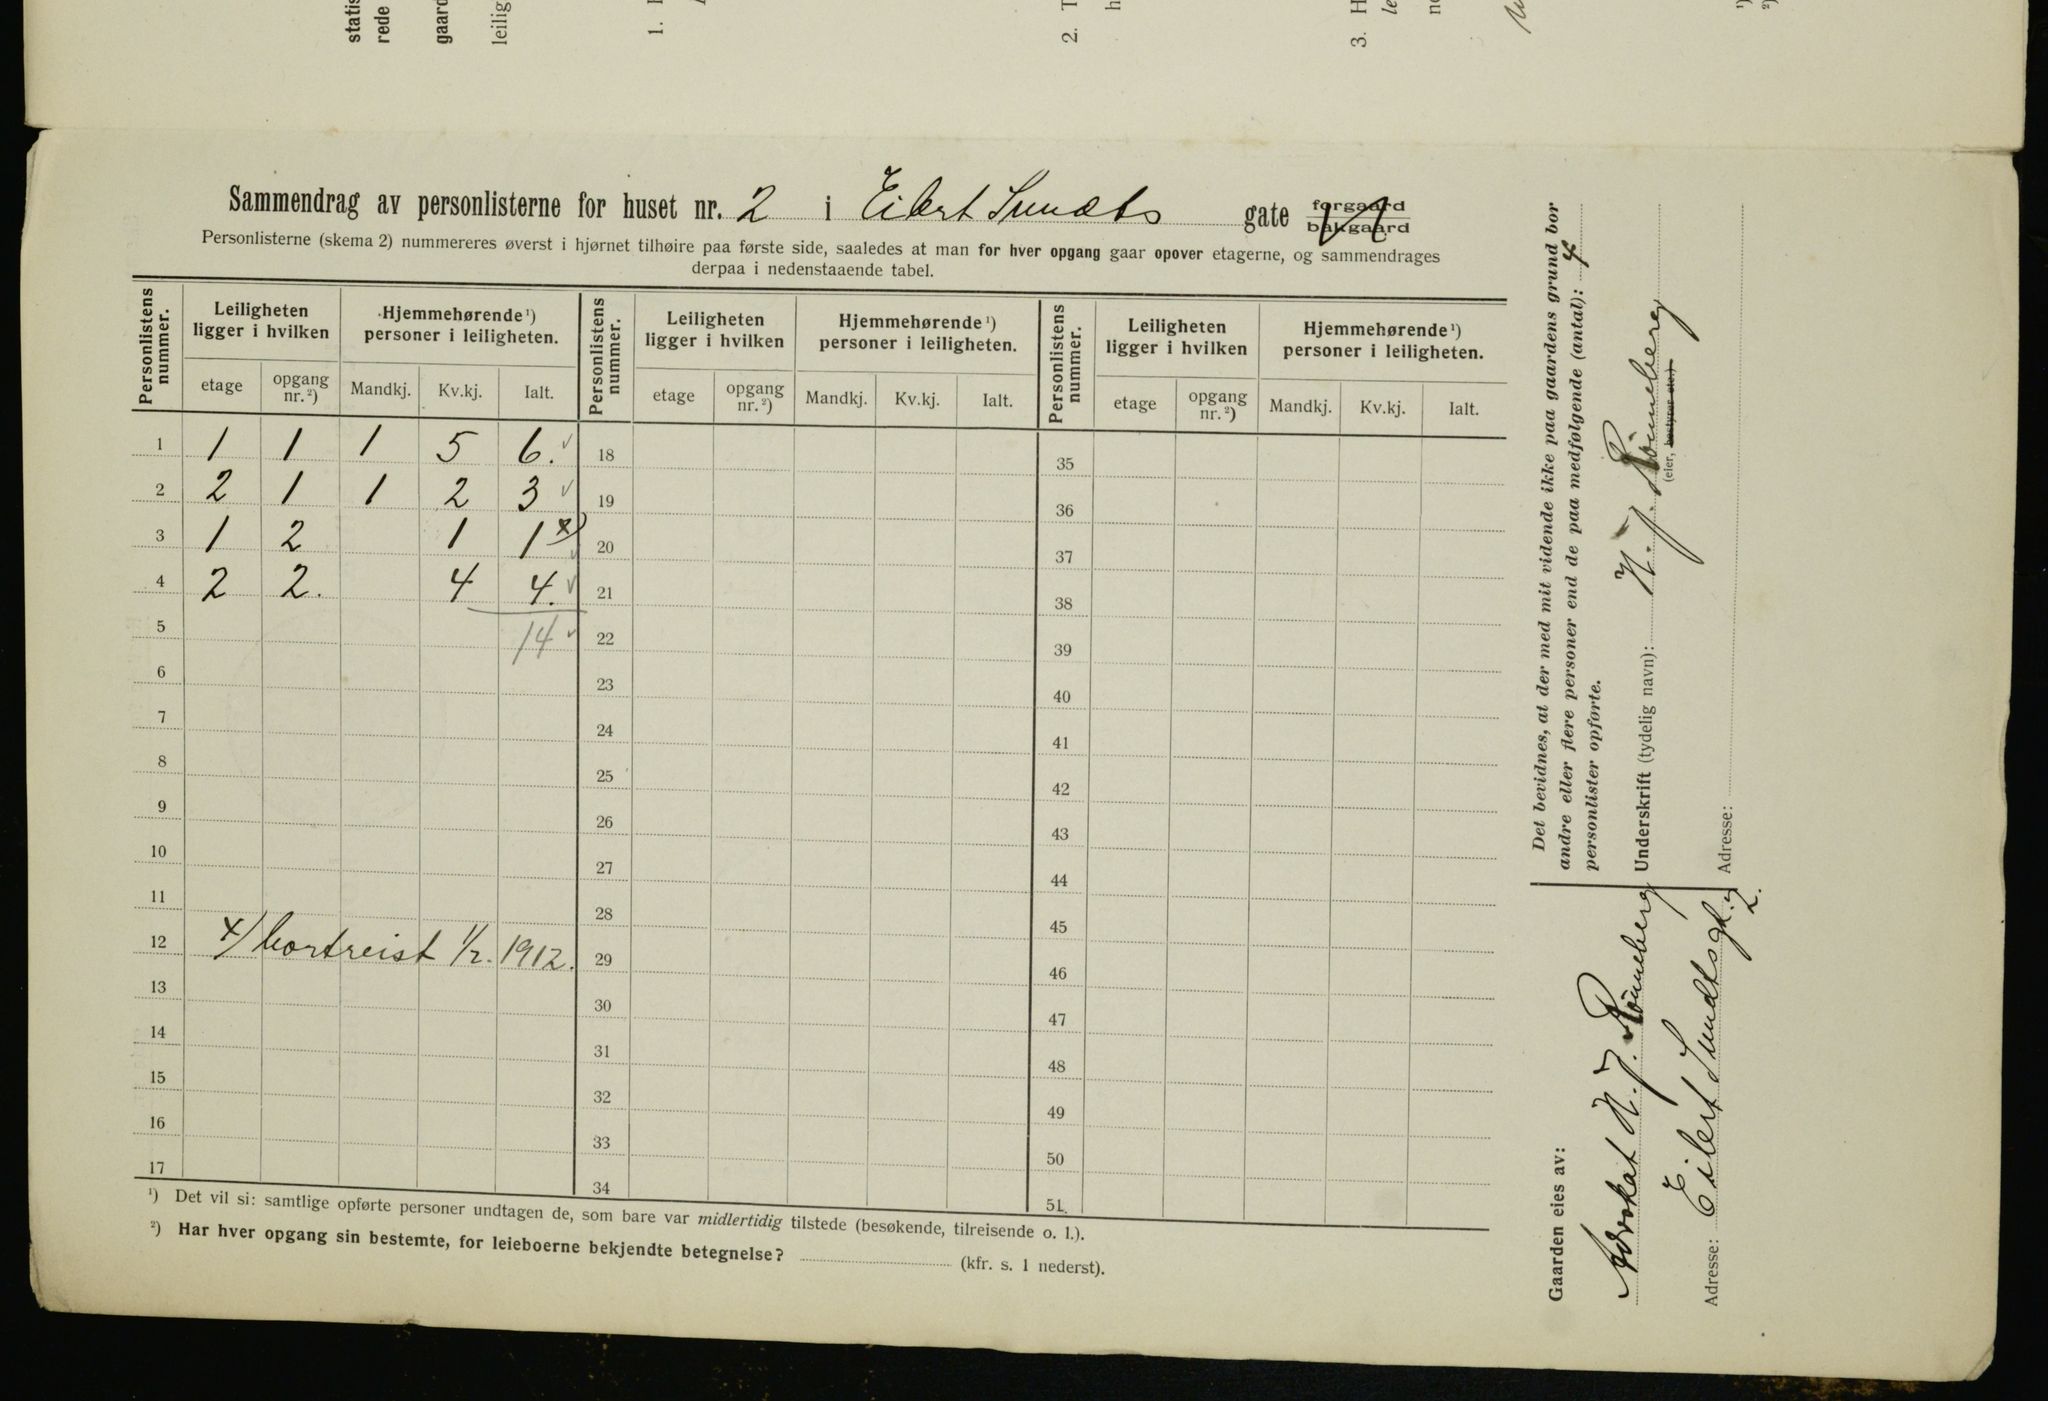 statis
rede
gaard
leilig
1.
2. T
h
3. H
le
Sammendrag av personlisterne for huset nr. 2 i Eilert Sundts gate forgaard bakgaard
Personlisterne (skema 2) nummereres øverst i hjørnet tilhøire paa første side, saaledes at man for hver opgang gaar opover etagerne, og sammendrages
derpaa i nedenstaaende tabel.
Personlistens nummer. | Leiligheten ligger i hvilken | Hjemmehørende ¹) personer i leiligheten. | Personlistens nummer. | Leiligheten ligger i hvilken | Hjemmehørende ¹) personer i leiligheten. | Personlistens nummer. | Leiligheten ligger i hvilken | Hjemmehørende ¹) personer i leiligheten.
etage | opgang nr. ²) | Mandkj. | Kv.kj. | Ialt. | etage | opgang nr. ²) | Mandkj. | Kv.kj. | Ialt. | etage | opgang nr. ²) | Mandkj. | Kv.kj. | Ialt.
1 | 1 | 1 | 1 | 5 | 6. ✓ | 18 | 35
2 | 2 | 1 | 1 | 2 | 3 ✓ | 19 | 36
3 | 1 | 2 | | 1 | 1 x) ✓ | 20 | 37
4 | 2 | 2. | | 4 | 4. ✓ | 21 | 38
5 | 14 ✓ | 22 | 39
6 | 23 | 40
7 | 24 | 41
8 | 25 | 42
9 | 26 | 43
10 | 27 | 44
11 | 28 | 45
12 | x/ bortreist 1/2. 1912. | 29 | 46
13 | 30 | 47
14 | 31 | 48
15 | 32 | 49
16 | 33 | 50
17 | 34 | 51.
¹) Det vil si: samtlige opførte personer undtagen de, som bare var midlertidig tilstede (besøkende, tilreisende o. l.).
²) Har hver opgang sin bestemte, for leieboerne bekjendte betegnelse? (kfr. s. 1 nederst).
Gaarden eies av:
Advokat N. J. Rönneberg
Adresse: Eilert Sundtsgt. 2.
Det bevidnes, at der med mit vidende ikke paa gaardens grund bor
andre eller flere personer end de paa medfølgende (antal): 4
personlister opførte.
Underskrift (tydelig navn): N. J. Rönneberg
(eier, bestyrer etc.)
Adresse: